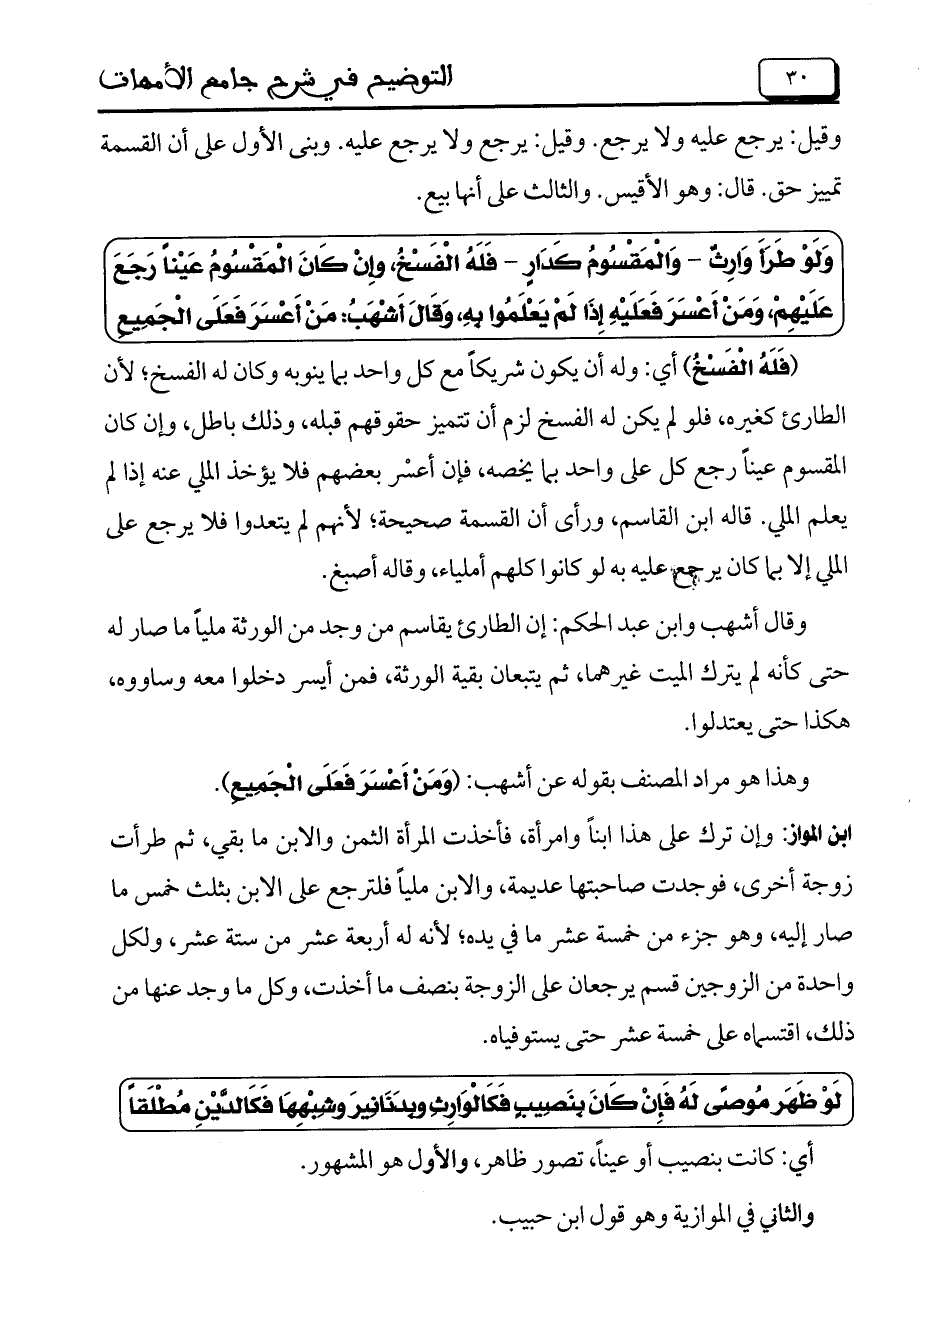 ٣٠
التوضيح في شرح جامع الأمهات
وقيل: يرجع عليه ولا يرجع. وقيل: يرجع ولا يرجع عليه. وبنى الأول على أن القسمة
تمييز حق. قال: وهو الأقيس. والثالث على أنها بيع.
وَلَوْ طَرَأَ وَارِثٌ – وَالْمَقْسُومُ كَدَارٍ – فَلَهُ الْفَسْخُ، وإِنْ كَانَ الْمَقْسُومُ عَيْناً رَجَعَ
عَلَيْهِمْ، وَمَنْ أَعْسَرَ فَعَلَيْهِ إِذَا لَمْ يَعْلَمُوا بِهِ، وَقَالَ أَشْهَبُ: مَنْ أَعْسَرَ فَعَلَى الْجَمِيعِ
(فَلَهُ الْفَسْخُ) أي: وله أن يكون شريكاً مع كل واحد بما ينوبه وكان له الفسخ؛ لأن
الطارئ كغيره، فلو لم يكن له الفسخ لزم أن تتميز حقوقهم قبله، وذلك باطل، وإن كان
المقسوم عيناً رجع كل على واحد بما يخصه، فإن أعسْر بعضهم فلا يؤخذ الملي عنه إذا لم
يعلم الملي. قاله ابن القاسم، ورأى أن القسمة صحيحة؛ لأنهم لم يتعدوا فلا يرجع على
الملي إلا بما كان يرجع عليه به لو كانوا كلهم أملياء، وقاله أصبغ.
وقال أشهب وابن عبد الحكم: إن الطارئ يقاسم من وجد من الورثة ملياً ما صار له
حتى كأنه لم يترك الميت غيرهما، ثم يتبعان بقية الورثة، فمن أيسر دخلوا معه وساووه،
هكذا حتى يعتدلوا.
وهذا هو مراد المصنف بقوله عن أشهب: (وَمَنْ أَعْسَرَ فَعَلَى الْجَمِيعِ).
ابن المواز: وإن ترك على هذا ابناً وامرأة، فأخذت المرأة الثمن والابن ما بقي، ثم طرأت
زوجة أخرى، فوجدت صاحبتها عديمة، والابن ملياً فلترجع على الابن بثلث خمس ما
صار إليه، وهو جزء من خمسة عشر ما في يده؛ لأنه له أربعة عشر من ستة عشر، ولكل
واحدة من الزوجين قسم يرجعان على الزوجة بنصف ما أخذت، وكل ما وجد عنها من
ذلك، اقتسماه على خمسة عشر حتى يستوفياه.
لَوْ ظَهَر مُوصًى لَهُ فَإِنْ كَانَ بِنَصِيبٍ فَكَالْوَارِثِ وبِدَنَانِيرَ وشِبْهِهَا فَكَالدَّيْنِ مُطْلَقاً
أي: كانت بنصيب أو عيناً، تصور ظاهر، والأول هو المشهور.
والثاني في الموازية وهو قول ابن حبيب.